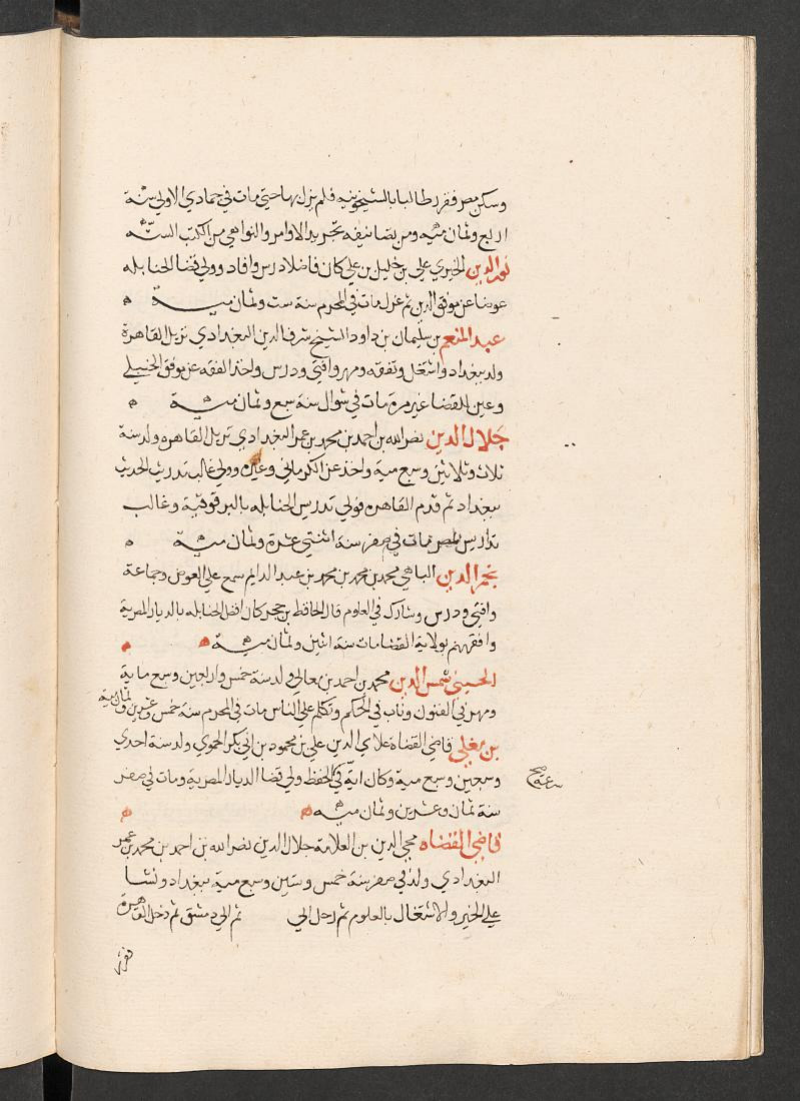 وسكن مصر فقرر طالبا بالشيخونيه فلم يزل بها حتى مات في جمادي الاولي سنة
اربع وثمان ميه ومن تصانيفه تجريد الاوامر والنواهي من الكتب الستة
نور الدين الحكري علي بن خليل بن علي كان فاضلا درس وافاد وولي قضا الحنابله
عوضا عن موفق الدين ثم عزل مات في المحرم سنة ست وثمان ميــة ه
عبد المنعم بن سليمان بن داود الشيخ شرف الدين البغدادي نزيل القاهرة
ولد ببغداد واشتغل وتفقه ومهر وافتي ودرس واخذ الفقه عن موفق الحنبلي
وعين للقضا غير مرة مات في شوال سنة سبع وثمان ميــة ه
جلال الدين نصر الله بن احمد بن محمد بن عمر البغدادي نزيل القاهره ولد سنة
ثلاث وثلاثين وسبع مية واخذ عن الكرماني وغيره وولي غالب تدريس الحديث
ببغداد ثم قدم القاهره فولي تدريس الحنابله بالبرقوقية وغالب
تداريس مات في صفر سنة اثنتي عشرة وثمان ميــة ه
نجم الدين الباهي محمد بن محمد بن محمد بن عبد الدايم سمع علي العرضي وجماعة
وافتي ودرس وشارك في العلوم قال الحافظ بن حجر كان افضل الحنابله بالديار المصرية
وافقههم بولاية القضا مات سنة اثنين وثمان ميــة ه ه
الحبتي شمس الدين محمد بن احمد بن معالي ولد سنة خمس واربعين وسبع ماية
ومهر في الفنون وناب في الحكم وتكلم علي الناس مات في المحرم سنة خمس وعشرين وثمان مية
بن مغلي قاضي القضاة علاي الدين علي بن محمود بن ابي بكر الحموي ولد سنة احدي
وسبعين وسبع مية وكان اية في الحفظ ولي قضا الديار المصرية ومات في صفر
سنة ثمان وعشرين وثمان ميــه ه ه
قاضي القضاه محي الدين بن العلامة جلال الدين نصر الله بن احمد بن محمد بن عمر
البغدادي ولد في صفر سنة خمس وستين وسبع مية ببغداد ونشا
علي الخير والاشتغال بالعلوم ثم رحل الي ثم الي دمشق ثم دخل القاهرة